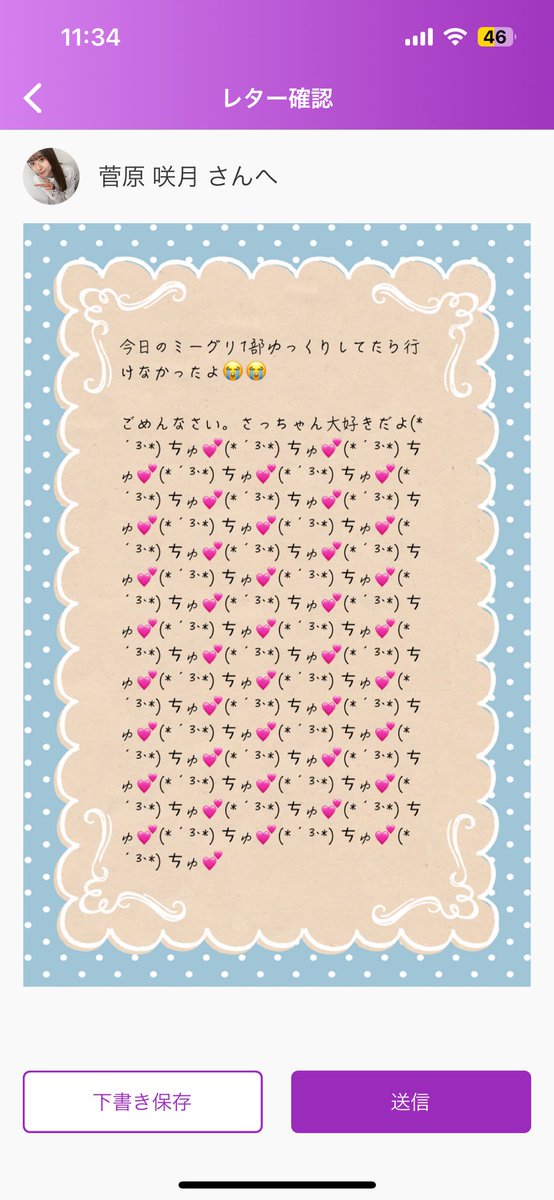 11:34
46
レター確認
菅原 咲月 さんへ
今日のミーグリ1部ゆっくりしてたら行
けなかったよ😭😭
ごめんなさい。さっちゃん大好きだよ(*
´³`*) ちゅ💕(*´³`*) ちゅ💕(*´³`*) ち
ゅ💕(*´³`*) ちゅ💕(*´³`*) ちゅ💕(*
´³`*) ちゅ💕(*´³`*) ちゅ💕(*´³`*) ち
ゅ💕(*´³`*) ちゅ💕(*´³`*) ちゅ💕(*
´³`*) ちゅ💕(*´³`*) ちゅ💕(*´³`*) ち
ゅ💕(*´³`*) ちゅ💕(*´³`*) ちゅ💕(*
´³`*) ちゅ💕(*´³`*) ちゅ💕(*´³`*) ち
ゅ💕(*´³`*) ちゅ💕(*´³`*) ちゅ💕(*
´³`*) ちゅ💕(*´³`*) ちゅ💕(*´³`*) ち
ゅ💕(*´³`*) ちゅ💕(*´³`*) ちゅ💕(*
´³`*) ちゅ💕(*´³`*) ちゅ💕(*´³`*) ち
ゅ💕(*´³`*) ちゅ💕(*´³`*) ちゅ💕(*
´³`*) ちゅ💕(*´³`*) ちゅ💕(*´³`*) ち
ゅ💕(*´³`*) ちゅ💕(*´³`*) ちゅ💕(*
´³`*) ちゅ💕(*´³`*) ちゅ💕(*´³`*) ち
ゅ💕(*´³`*) ちゅ💕(*´³`*) ちゅ💕(*
´³`*) ちゅ💕
下書き保存
送信